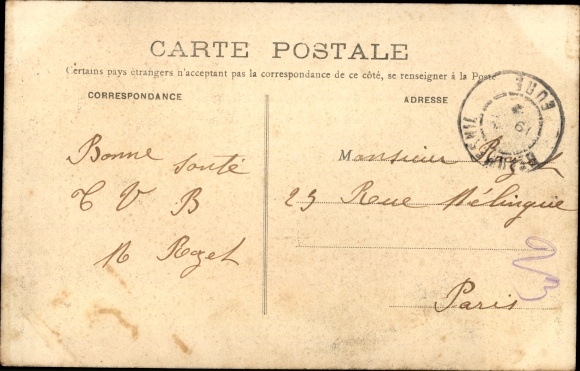 CARTE POSTALE
Certains pays étrangers n'acceptant pas la correspondance de ce côté, se renseigner à la Poste
CORRESPONDANCE
Bonne santé
T V B
R Roget
ADRESSE
Monsieur Roget
25 Rue Mélingue
Paris
EURE
19